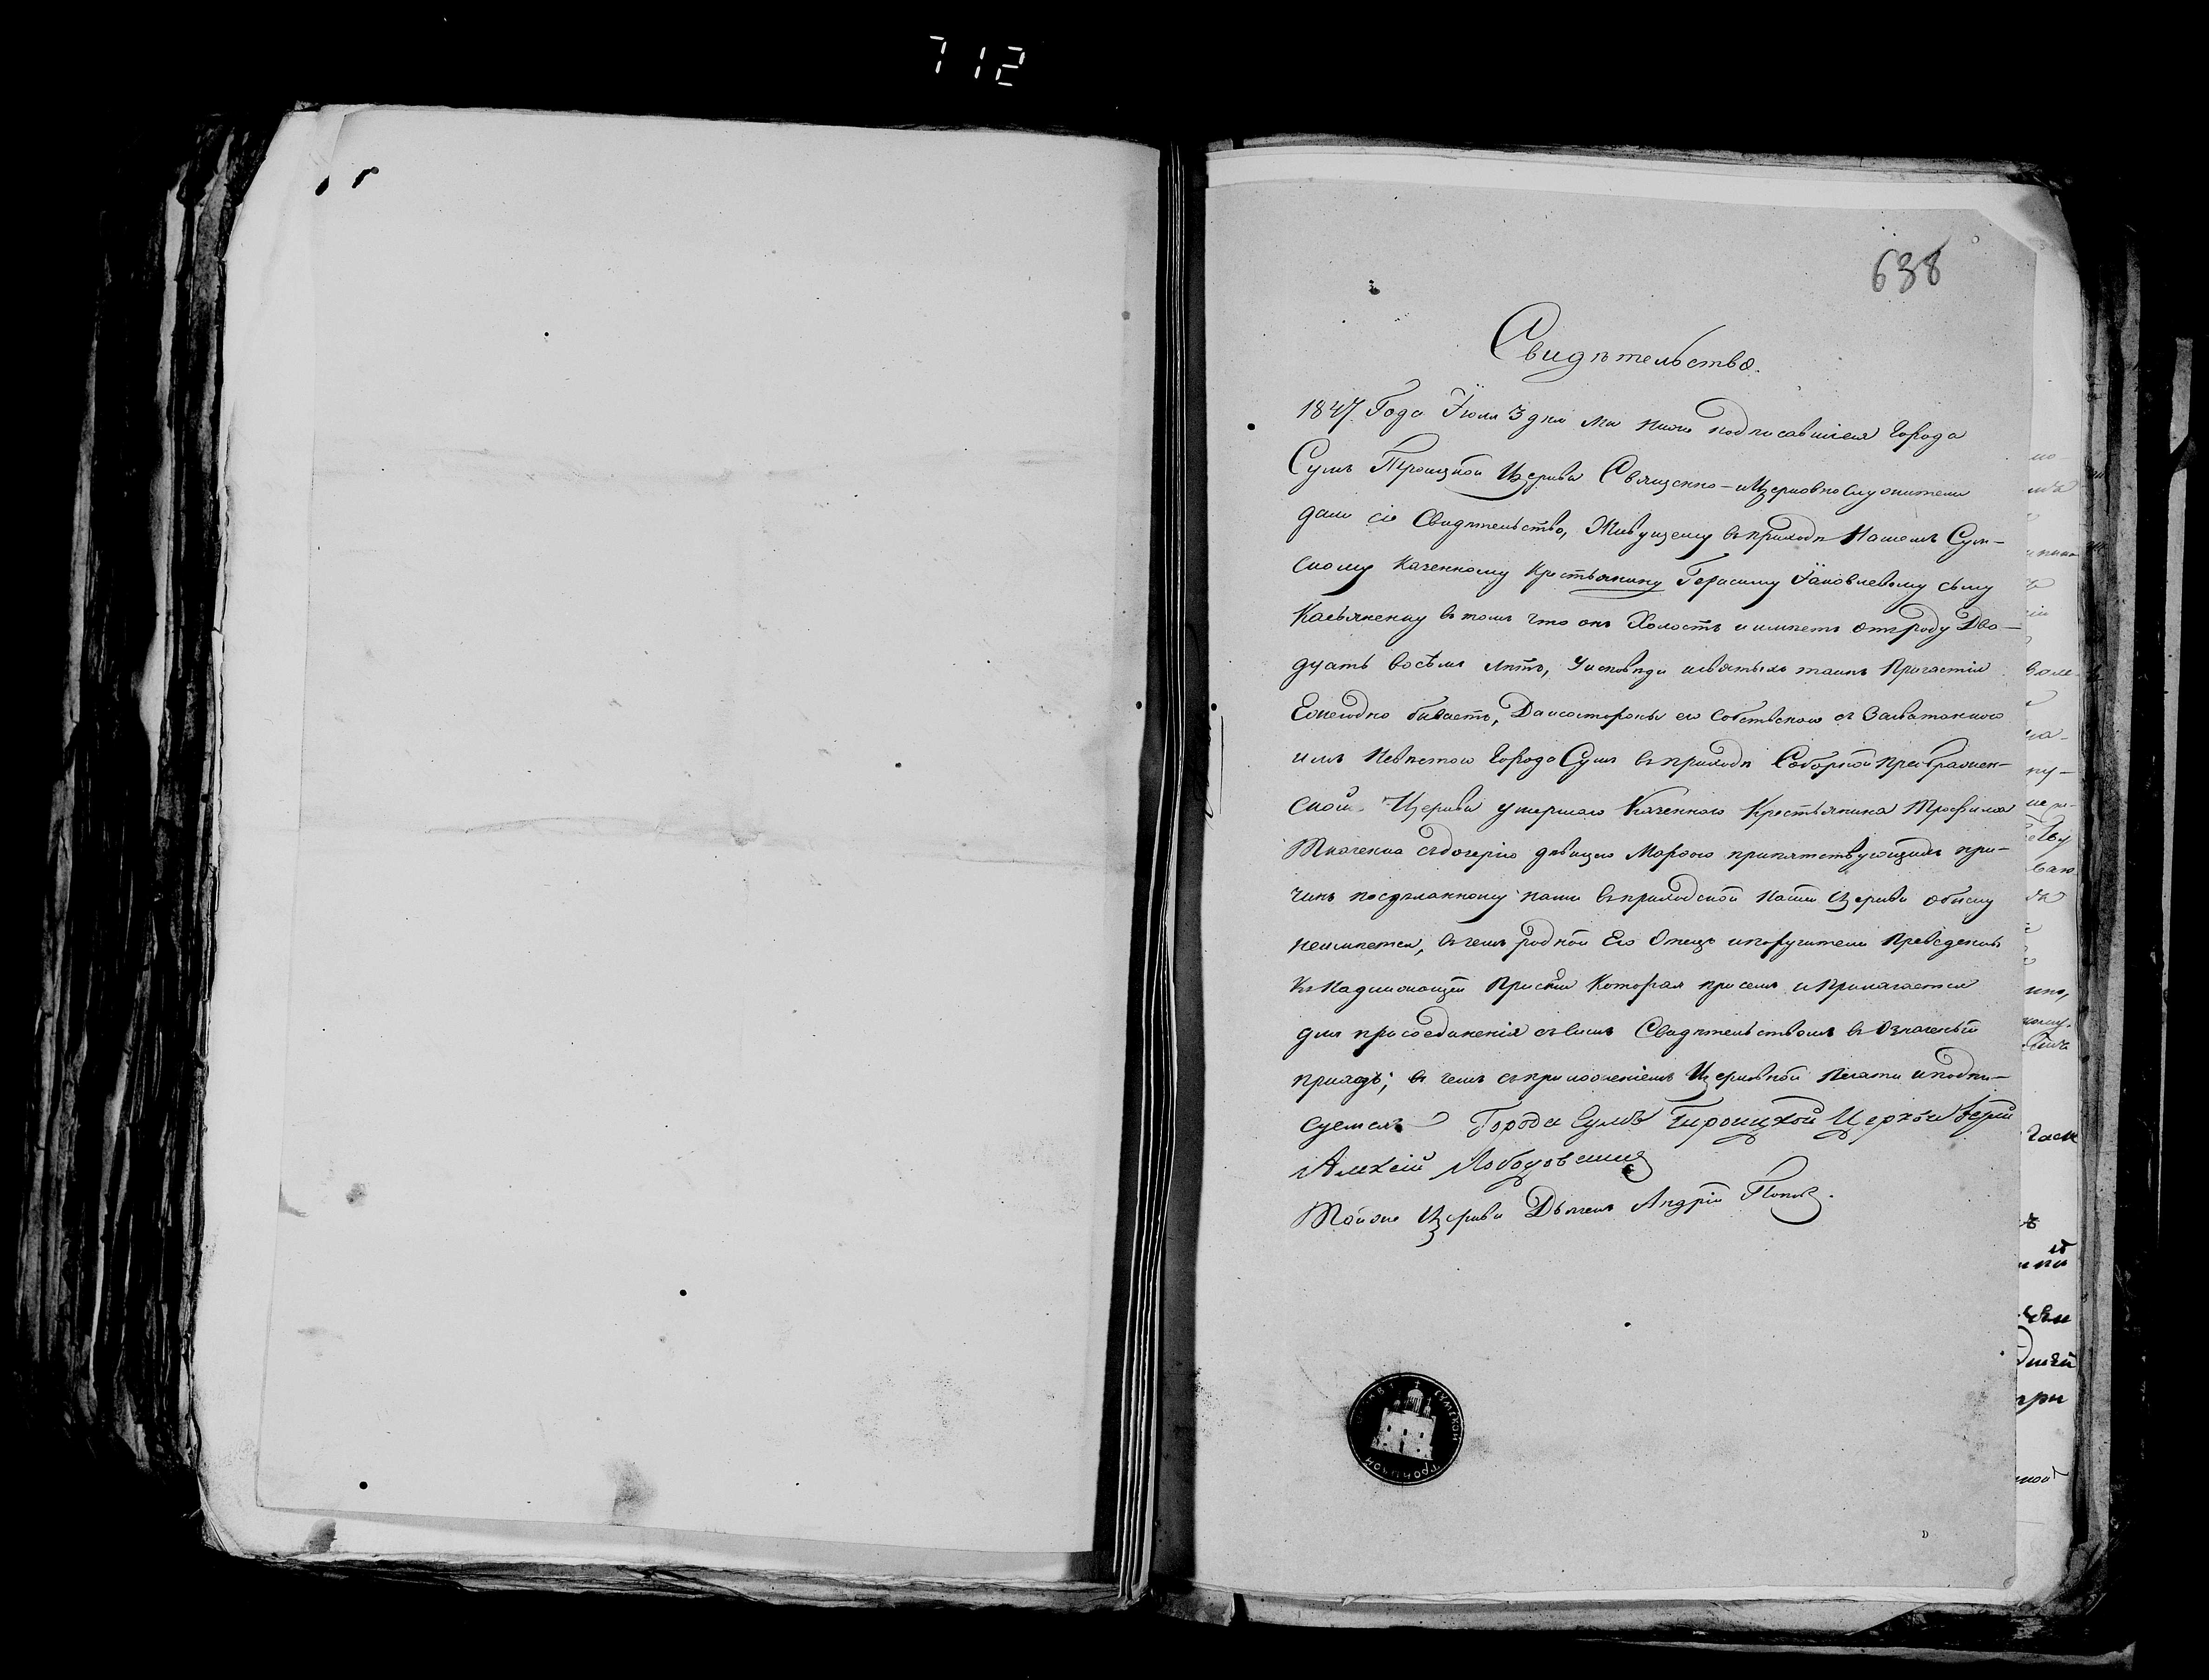 712
638
Свидѣтельство.
1847 Года Іюля 3 дня мы ниже подписавшіеся Города
Сумъ Троицкой Церкви Священно-иЦерковнослужители
дали сіе Свидѣтельство, Живущему въприходѣ Нашемъ Сум-
скому казенному крестьянину Герасиму Іаковлевому сыну
Касьяненку въ томъ что онъ Холостъ и имѣетъ отъроду Два-
дцать восѣмъ лѣтъ, Уисповѣди исвятыхъ таинъ Причастія
Ежегодно бываетъ, Даисостороны его собственно съ Засватанною
имъ Невѣстою Города Сумъ въприходѣ Соборной Преображен-
ской Церкви умершаго Казенного Крестьянина Трофима
Ткаченка съдочерью дѣвицею Марѳою припятствующихъ при-
чинъ посдѣланному нами въприходской нашей Церкви обыску
неимѣется, въчемъ родной Его Отецъ ипоручители Приведены
къ Надлежащей Присягѣ Которая присемъ иПрилагается
для присоединенія съсимъ Свидѣтельствомъ въ Означеный
приходъ; въ чемъ съприложеніемъ Церковной Печати иподпи-
суемся Города Сумъ Троицкой Церкви Іерей
Алексій Лободовскій
Тойже Церкви Дьячекъ Андрій Поповъ.
СУМСКОЙ ТРОИЦКОЙ